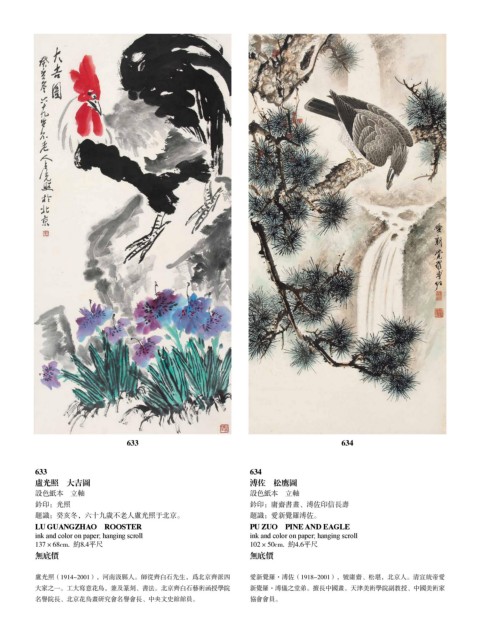 大吉圖
癸亥冬六十九歲不老人盧光照於北京
愛新覺羅溥佐
633
634
633
盧光照 大吉圖
設色紙本 立軸
鈐印：光照
題識：癸亥冬、六十九歲不老人盧光照于北京。
LU GUANGZHAO ROOSTER
ink and color on paper; hanging scroll
137 × 68cm. 約8.4平尺
無底價
盧光照（1914~2001），河南汲縣人。師從齊白石先生，爲北京齊派四
大家之一。工大寫意花鳥、兼及篆刻、書法。北京齊白石藝術函授學院
名譽院長、北京花鳥畫研究會名譽會長、中央文史館館員。
634
溥佐 松鷹圖
設色紙本 立軸
鈐印：庸齋書畫、溥佐印信長壽
題識：愛新覺羅溥佐。
PU ZUO PINE AND EAGLE
ink and color on paper; hanging scroll
102 × 50cm. 約4.6平尺
無底價
愛新覺羅・溥佐（1918~2001），號庸齋、松堪，北京人。清宣統帝愛
新覺羅・溥儀之堂弟。擅長中國畫。天津美術學院副教授、中國美術家
協會會員。